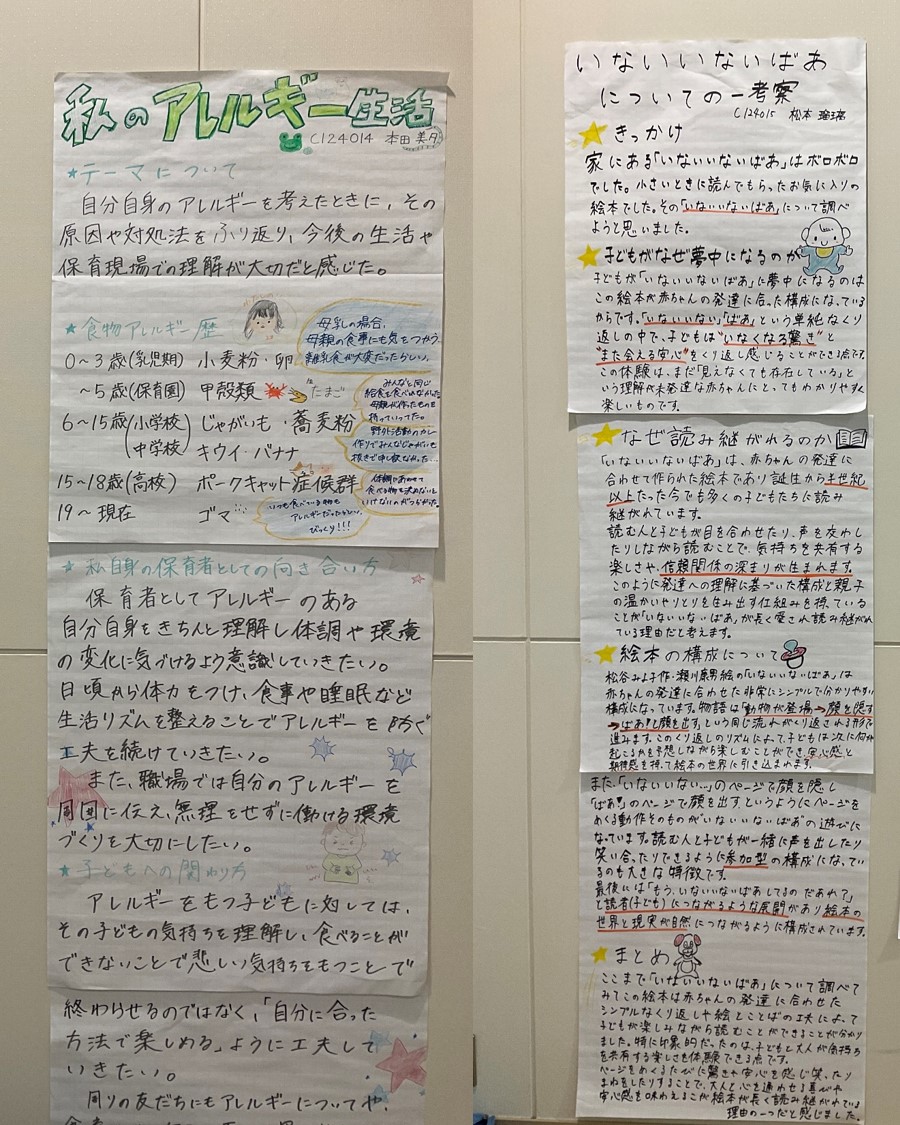 私のアレルギー生活
C124014 本田 美夕
★テーマについて
自分自身のアレルギーを考えたときに、その
原因や対処法をふり返り、今後の生活や
保育現場での理解が大切だと感じた。
★食物アレルギー歴
母乳の場合、
母親の食事にも気をつかう。
離乳食が大変だったらしい。
0~3歳(乳児期) 小麦粉・卵
~5歳(保育園) 甲殻類 たまご
みんなと同じ
給食を食べれなかった
母親が作ったものを
持っていってた。
6~15歳(小学校 じゃがいも・蕎麦粉
中学校) キウイ・バナナ
野外活動のカレー
作りでみんなじゃがいも
抜きで申し訳なかった…
15~18歳(高校) ポークキャット症候群
体調にあわせて
食べる物を決めないと
いけないのがつらかった。
19~現在 ゴマ
いつも食べている物も
アレルギーだったらしい。
びっくり!!!
★私自身の保育者としての向き合い方
保育者としてアレルギーのある
自分自身をきちんと理解し体調や環境
の変化に気づけるよう意識していきたい。
日頃から体力をつけ、食事や睡眠など
生活リズムを整えることでアレルギーを防ぐ
工夫を続けていきたい。
また、職場では自分のアレルギーを
周囲に伝え、無理をせずに働ける環境
づくりを大切にしたい。
★子どもへの関わり方
アレルギーをもつ子どもに対しては、
その子どもの気持ちを理解し、食べることが
できないことで悲しい気持ちをもつことで
終わらせるのではなく、「自分に合った
方法で楽しめる」ように工夫して
いきたい。
周りの友だちにもアレルギーについてや、
いないいないばあ
についての一考察
C124015 松本 瑠璃
★きっかけ
家にある「いないいないばあ」はボロボロ
でした。小さいときに読んでもらったお気に入りの
絵本でした。その「いないいないばあ」について調べ
ようと思いました。
★子どもがなぜ夢中になるのか
子どもが「いないいないばあ」に夢中になるのは
この絵本が赤ちゃんの発達に合った構成になっている
からです。「いないいない」「ばあ」という単純なくり
返しの中で、子どもは"いなくなる驚き"と
"また会える安心"をくり返し感じることができる点です。
この体験は、まだ「見えなくても存在している」と
いう理解が未発達な赤ちゃんにとってもわかりやすく
楽しいものです。
★なぜ読み継がれるのか
「いないいないばあ」は、赤ちゃんの発達に
合わせて作られた絵本であり誕生から半世紀
以上たった今でも多くの子どもたちに読み
継がれています。
読む人と子どもが目を合わせたり、声を交わし
たりしながら読むことで、気持ちを共有する
楽しさや、信頼関係の深まりが生まれます。
このように発達への理解に基づいた構成と親子
の温かいやりとりを生み出す仕組みを持っている
ことが「いないいないばあ」が長く愛され読み継がれ
ている理由だと考えます。
★絵本の構成について
松谷みよ子作・瀬川康男絵の「いないいないばあ」は
赤ちゃんの発達に合わせた非常にシンプルで分かりやすい
構成になっています。物語は「動物が登場→顔を隠す
→ばあ!と顔を出す」という同じ流れがくり返される形で
進みます。このくり返しのリズムによって、子どもは次に何が
起こるかを予想しながら楽しむことができ、安心感と
期待感を持って絵本の世界に引き込まれます。
また、「いないいない…」のページで顔を隠し
「ばあ!」のページで顔を出す、というようにページを
めくる動作そのものが"いないいないばあ"の遊びに
なっています。読む人と子どもが一緒に声を出したり
笑い合ったりできるように参加型の構成になってい
るのも大きな特徴です。
最後には「もう、いないいないばあしてるの だあれ?」
と読者(子ども)につながるような展開があり絵本の
世界と現実が自然につながるように構成されています。
★まとめ
ここまで「いないいないばあ」について調べて
みてこの絵本は赤ちゃんの発達に合わせた
シンプルなくり返しや絵とことばの工夫によって
子どもが楽しみながら読むことができることが分かり
ました。特に印象的だったのは、子どもと大人が気持ち
を共有する楽しさを体験できる点です。
ページをめくるたびに驚きや安心を感じ笑ったり
まねをしたりすることで、大人と心を通わせる喜びや
安心感を味わえることが絵本が長く読み継がれている
理由の一つだと感じました。